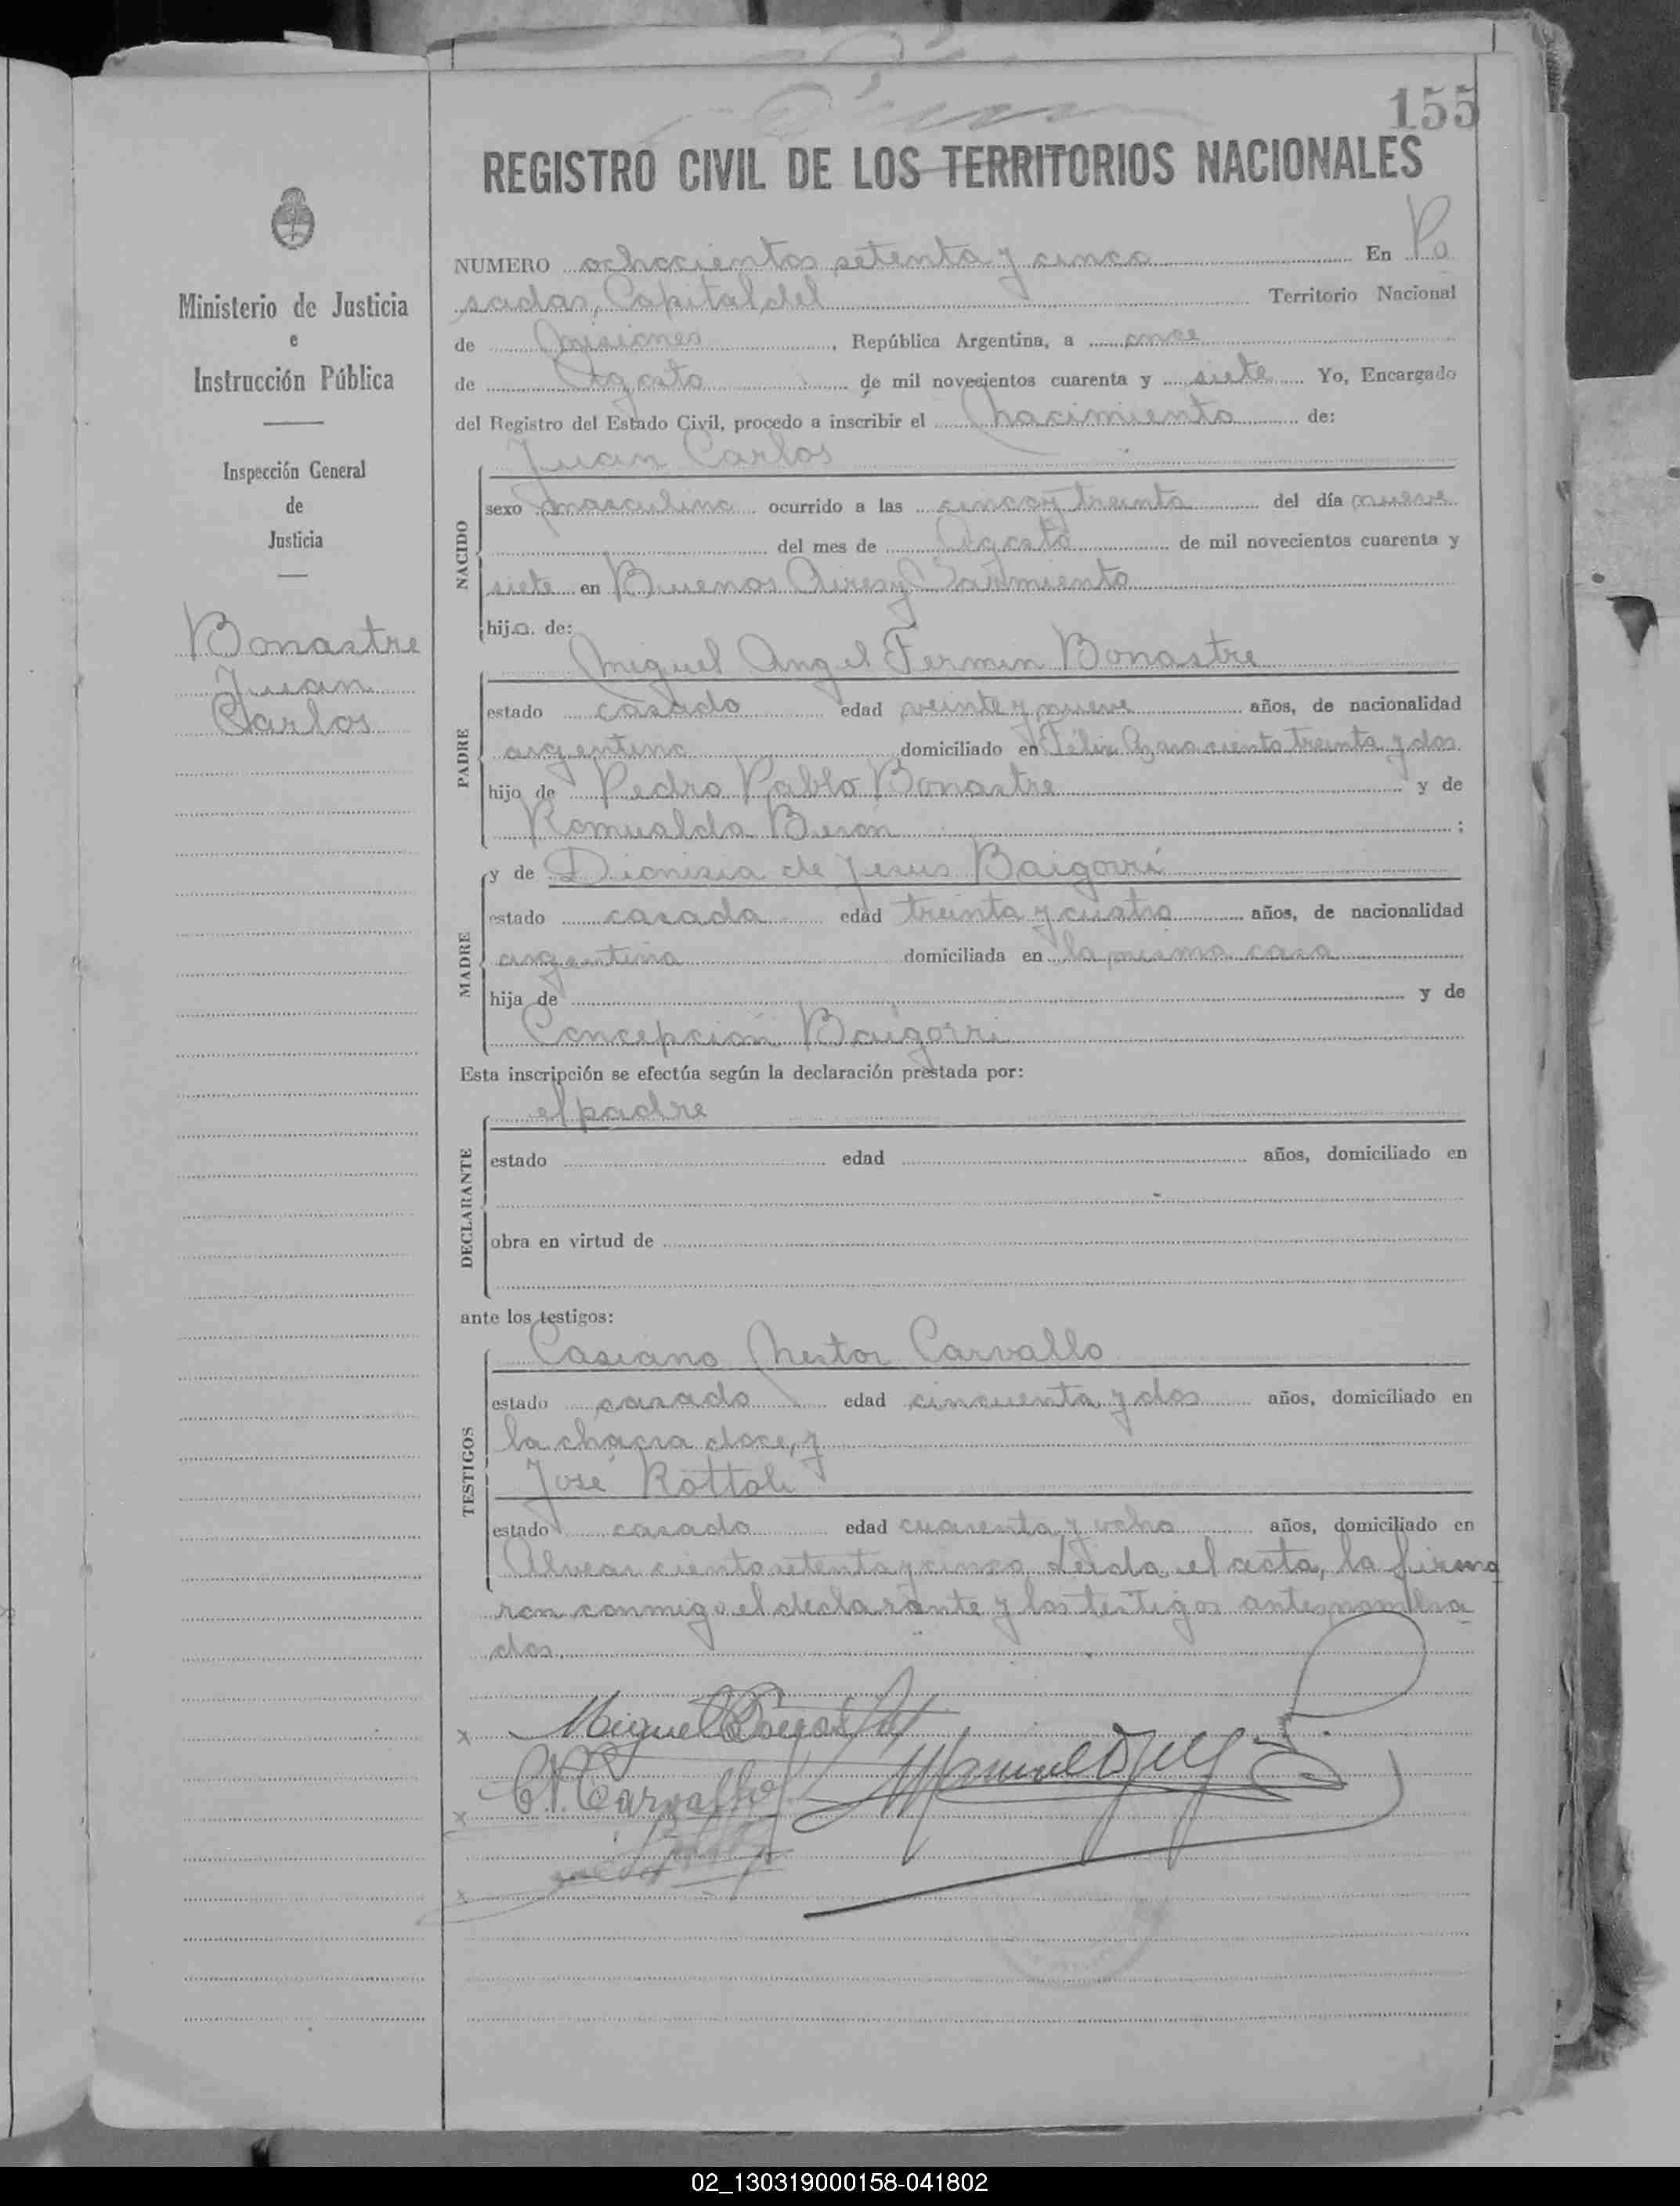 155
REGISTRO CIVIL DE LOS TERRITORIOS NACIONALES
Ministerio de Justicia
e
Instrucción Pública
Inspección General
de
Justicia
Bonastre
Juan
Carlos
NUMERO ochocientos setenta y cinco En Po
sadas, Capital del Territorio Nacional
de Misiones, República Argentina, a once
de Agosto de mil novecientos cuarenta y siete Yo, Encargado
del Registro del Estado Civil, procedo a inscribir el nacimiento de:
NACIDO
Juan Carlos
sexo masculino ocurrido a las cinco y treinta del día nueve
del mes de Agosto de mil novecientos cuarenta y
siete en Buenos Aires y Sarmiento
hijo de:
PADRE
Miguel Angel Fermin Bonastre
estado casado edad veinte y nueve años, de nacionalidad
argentina domiciliado en Félix Azara ciento treinta y dos
hijo de Pedro Pablo Bonastre y de
Romualda Beron;
MADRE
y de Dionisia de Jesus Baigorrí
estado casada edad treinta y cuatro años, de nacionalidad
argentina domiciliada en la misma casa
hija de y de
Concepción Baigorri
Esta inscripción se efectúa según la declaración prestada por:
DECLARANTE
el padre
estado edad años, domiciliado en
obra en virtud de
ante los testigos:
TESTIGOS
Casiano Nestor Carvallo
estado casado edad cincuenta y dos años, domiciliado en
la chacra doce, y
José Rottoli
estado casado edad cuarenta y ocho años, domiciliado en
Alvear ciento setenta y cinco. Leida el acta, la firma
ron conmigo el declarante y los testigos antes nombra
dos.
x Miguel
x C. N. Carvallo
x
02_130319000158-041802